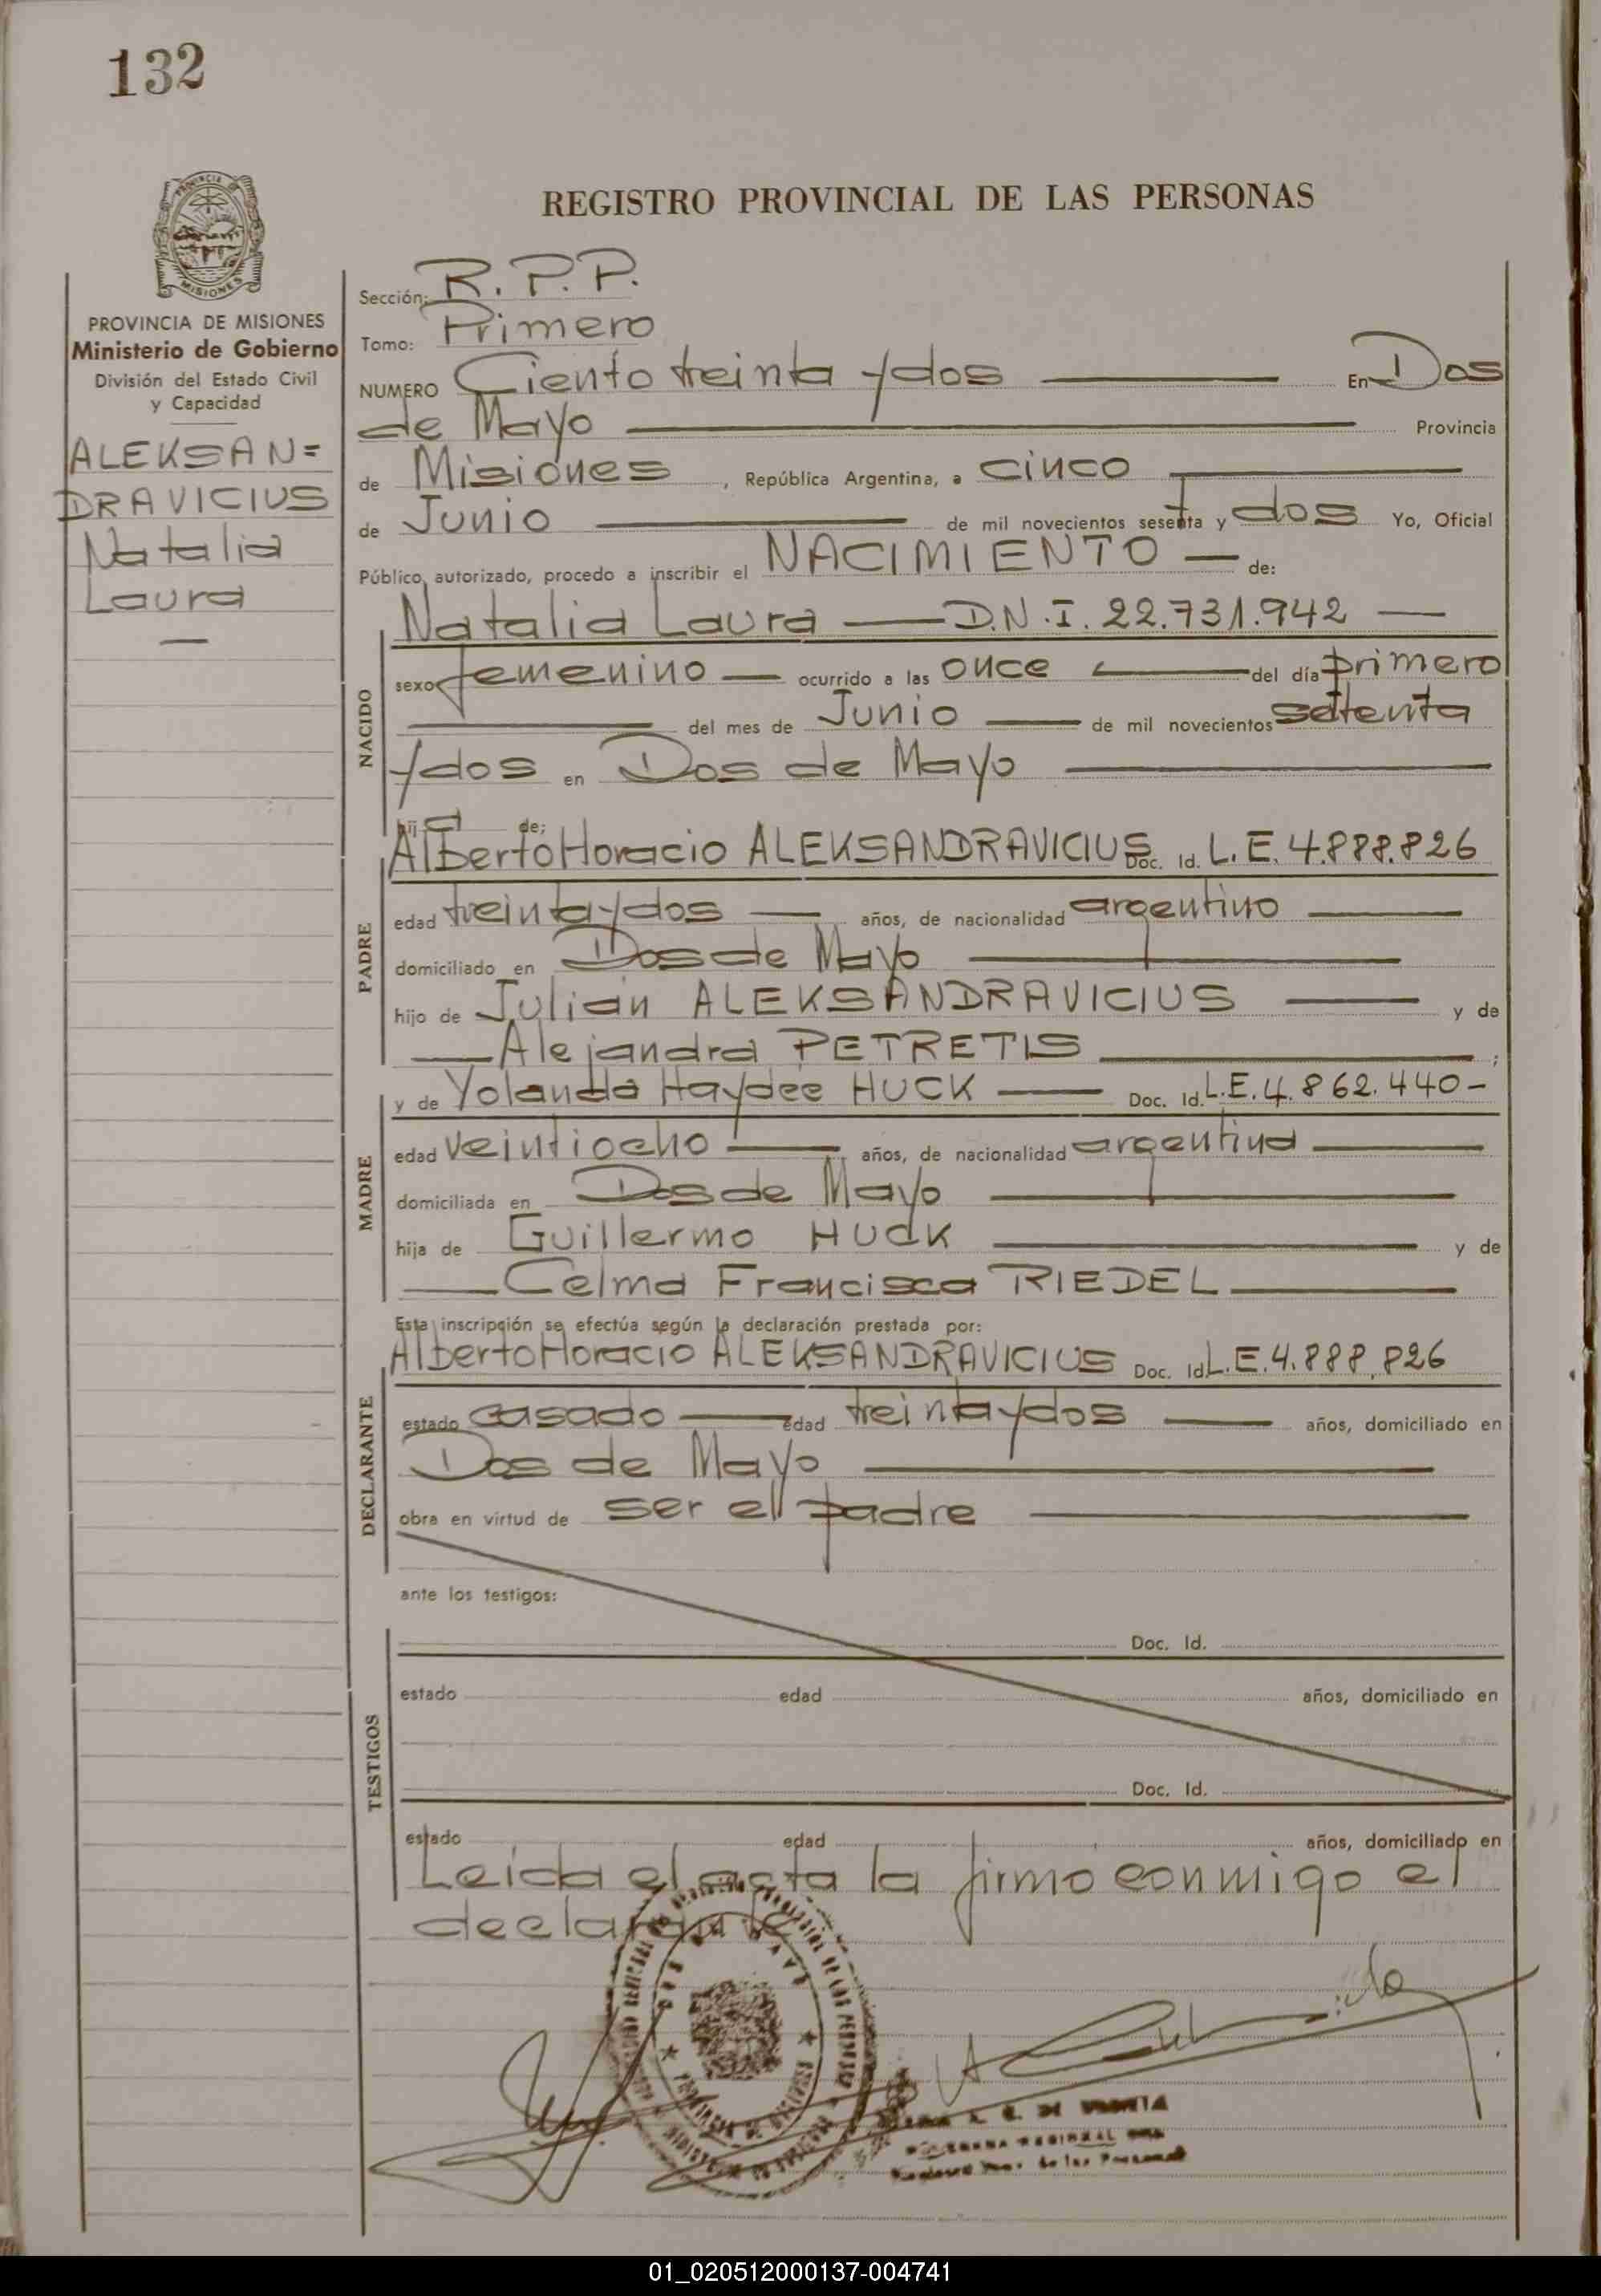 132
REGISTRO PROVINCIAL DE LAS PERSONAS
PROVINCIA DE MISIONES
Ministerio de Gobierno
División del Estado Civil
y Capacidad
ALEKSAN=
DRAVICIUS
Natalia
Laura
Sección: R.P.P.
Tomo: Primero
NUMERO Ciento treinta y dos En Dos
de Mayo Provincia
de Misiones, República Argentina, a cinco
de Junio de mil novecientos sesenta y dos Yo, Oficial
Público autorizado, procedo a inscribir el NACIMIENTO de:
Natalia Laura — D.N.I. 22.731.942 —
NACIDO
sexo femenino ocurrido a las once del día primero
del mes de Junio de mil novecientos setenta
y dos en Dos de Mayo
hija de:
Alberto Horacio ALEKSANDRAVICIUS Doc. Id. L.E. 4.888.826
PADRE
edad treinta y dos años, de nacionalidad argentino
domiciliado en Dos de Mayo
hijo de Julián ALEKSANDRAVICIUS y de
Alejandra PETRETIS ;
y de Yolanda Haydée HUCK Doc. Id. L.E. 4.862.440-
MADRE
edad veintiocho años, de nacionalidad argentina
domiciliada en Dos de Mayo
hija de Guillermo HUCK y de
Celma Francisca RIEDEL
Esta inscripción se efectúa según la declaración prestada por:
Alberto Horacio ALEKSANDRAVICIUS Doc. Id. L.E. 4.888.826
DECLARANTE
estado casado edad treinta y dos años, domiciliado en
Dos de Mayo
obra en virtud de ser el padre
ante los testigos:
Doc. Id.
TESTIGOS
estado edad años, domiciliado en
Doc. Id.
estado edad años, domiciliado en
Leida el acta la firmo conmigo el
declarante
01_020512000137-004741